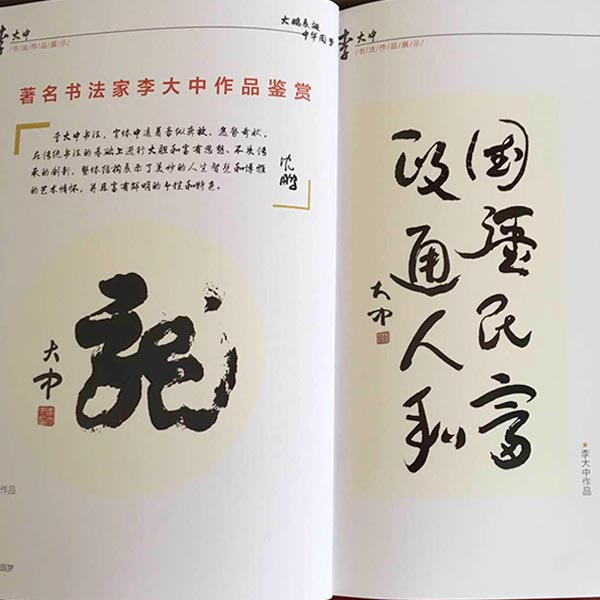 李大中
/书/法/作/品/展/示/
大鹏展翅
中华圆梦
著名书法家李大中作品鉴赏
李大中书法，字体中透着看似奔放，
在传统书法的基础上进行大胆和富有思想、不失传
承的创新，整体结构展示了美妙的人生智慧和博雅
的艺术情怀，并且富有鲜明的个性和特色。
沈鹏
龍
大中
作品
圆梦
李大中
/书/法/作/品/展/示/
国强民富
政通人和
大中
★李大中作品